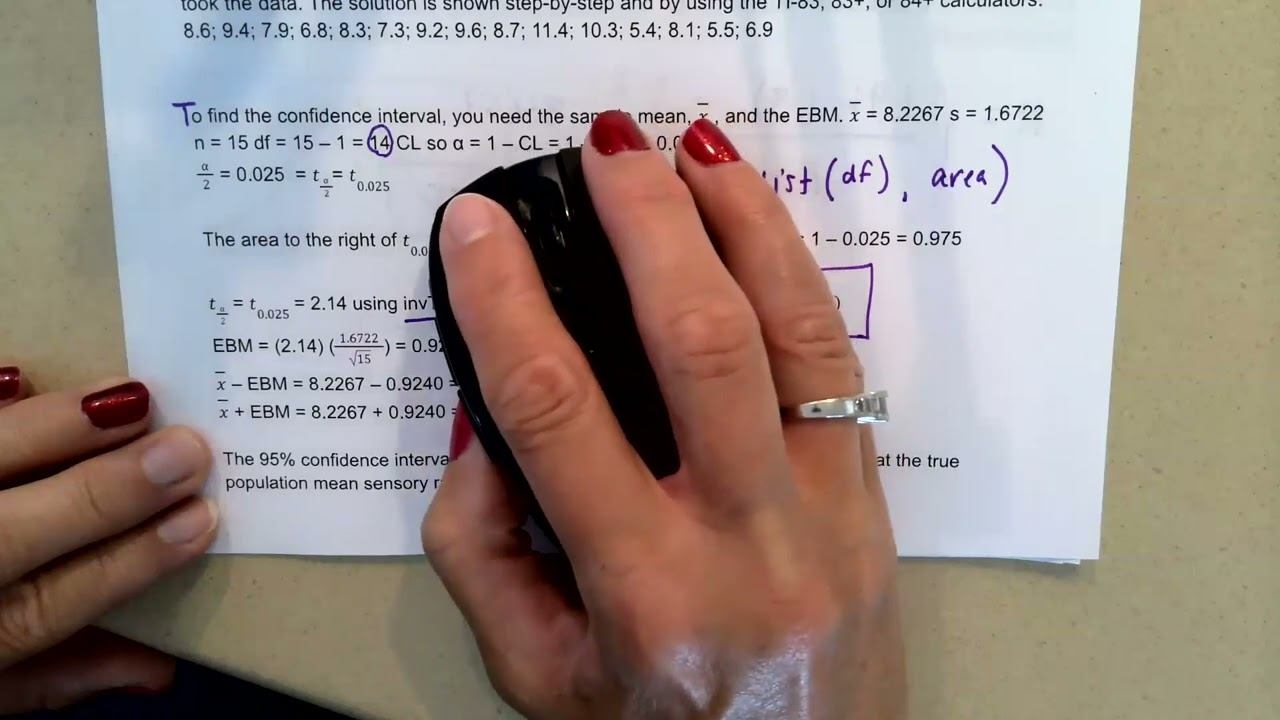 took the data. The solution is shown step-by-step and by using the TI-83, 83+, or 84+ calculators.
8.6; 9.4; 7.9; 6.8; 8.3; 7.3; 9.2; 9.6; 8.7; 11.4; 10.3; 5.4; 8.1; 5.5; 6.9
To find the confidence interval, you need the mean, x̅, and the EBM. x̅ = 8.2267 s = 1.6722
n = 15 df = 15 – 1 = 14 CL so α = 1 – CL = 1
α/2 = 0.025 = t α/2 = t 0.025
(df), area)
The area to the right of t 1 – 0.025 = 0.975
t α/2 = t 0.025 = 2.14 using
EBM = (2.14) (1.6722/√15) =
x̅ – EBM = 8.2267 – 0.9240 =
x̅ + EBM = 8.2267 + 0.9240 =
The 95% confidence at the true
population mean sensory